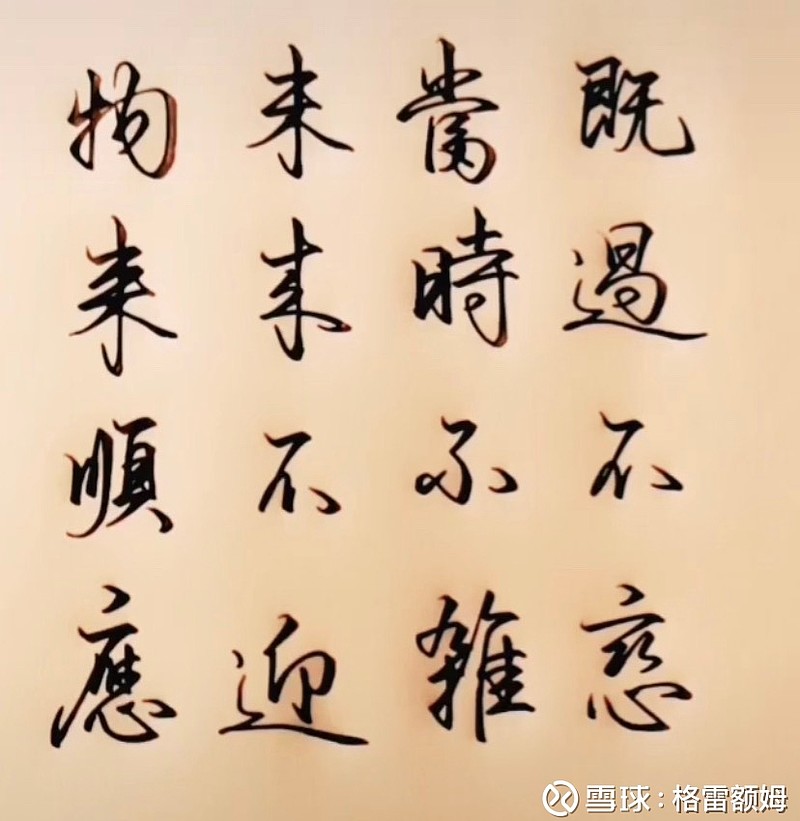 既過不恋
當時不雜
未来不迎
物来順應
雪球：格雷额姆